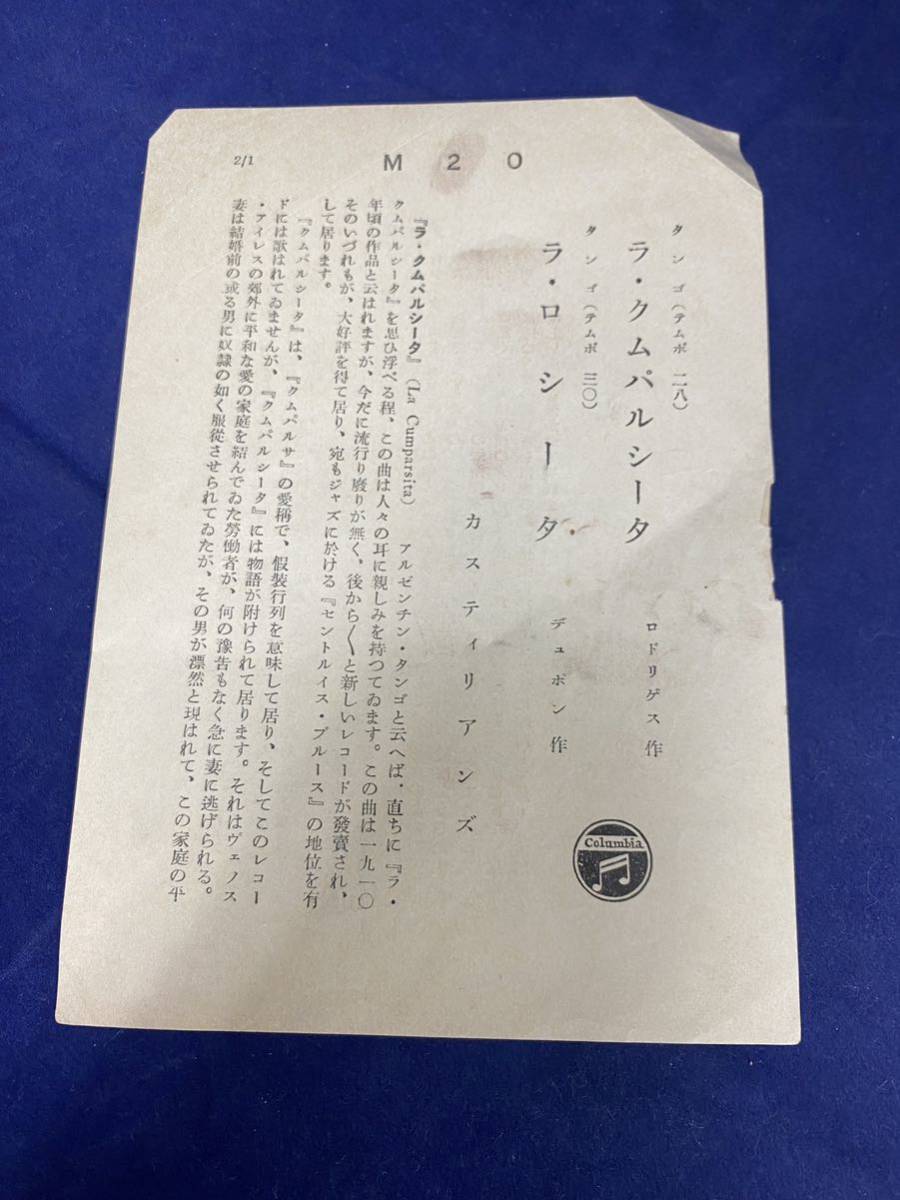 M20
2/1
タンゴ(テムポ 二八)
ラ・クムパルシータ
ロドリゲス作
タンゴ(テムポ 三〇)
ラ・ロシータ
デュポン作
カスティリアンズ
Columbia
『ラ・クムパルシータ』(La Cumparsita) アルゼンチン・タンゴと云へば、直ちに『ラ・
クムパルシータ』を思ひ浮べる程、この曲は人々の耳に親しみを持つてゐます。この曲は一九一〇
年頃の作品と云はれますが、今だに流行り廢りが無く、後から〱と新しいレコードが發賣され、
そのいづれもが、大好評を得て居り、宛もジャズに於ける『セントルイス・ブルース』の地位を有
して居ります。
『クムパルシータ』は、『クムパルサ』の愛稱で、假裝行列を意味して居り、そしてこのレコー
ドには歌はれてゐませんが、『クムパルシータ』には物語が附けられて居ります。それはヴェノス
・アイレスの郊外に平和な愛の家庭を結んでゐた勞働者が、何の豫告もなく急に妻に逃げられる。
妻は結婚前の或る男に奴隷の如く服從させられてゐたが、その男が漂然と現はれて、この家庭の平